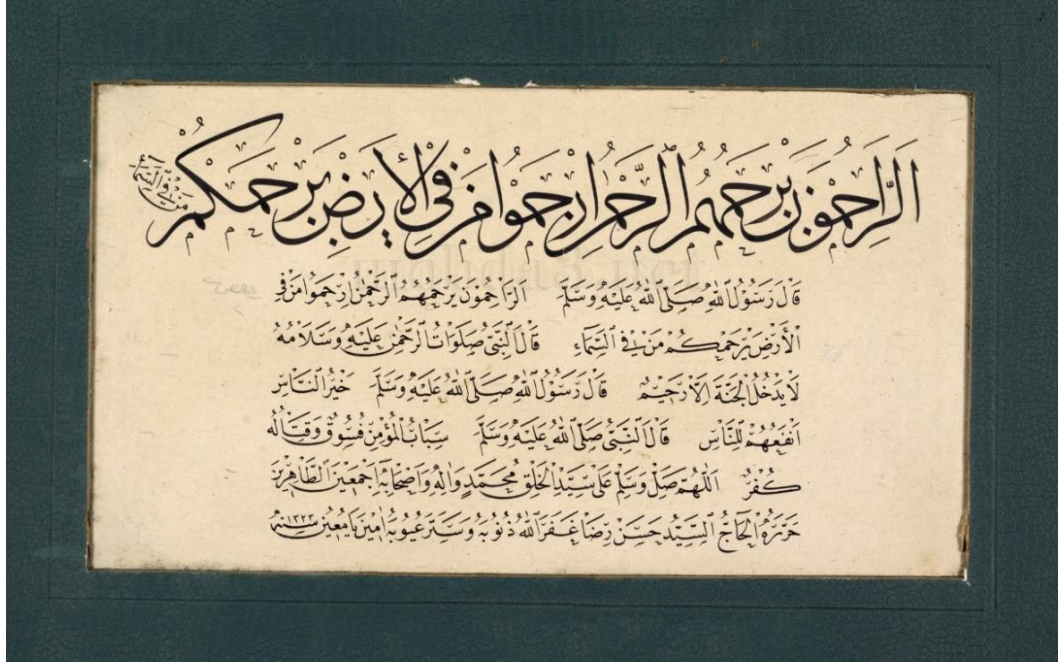 الرَّاحِمُونَ يَرْحَمُهُمُ الرَّحْمٰنُ اِرْحَمُوا مَنْ فِي الْأَرْضِ يَرْحَمْكُمْ مَنْ فِي السَّمَاءِ
قَالَ رَسُولُ اللّٰهِ صَلَّى اللّٰهُ عَلَيْهِ وَسَلَّمَ الرَّاحِمُونَ يَرْحَمُهُمُ الرَّحْمٰنُ اِرْحَمُوا مَنْ فِي
الْأَرْضِ يَرْحَمْكُمْ مَنْ فِي السَّمَاءِ قَالَ النَّبِيُّ صَلَوَاتُ الرَّحْمٰنِ عَلَيْهِ وَسَلَامُهُ
لَا يَدْخُلُ الْجَنَّةَ اِلَّا رَحِيمٌ قَالَ رَسُولُ اللّٰهِ صَلَّى اللّٰهُ عَلَيْهِ وَسَلَّمَ خَيْرُ النَّاسِ
اَنْفَعُهُمْ لِلنَّاسِ قَالَ النَّبِيُّ صَلَّى اللّٰهُ عَلَيْهِ وَسَلَّمَ سِبَابُ الْمُؤْمِنِ فُسُوقٌ وَقِتَالُهُ
كُفْرٌ اَللّٰهُمَّ صَلِّ وَسَلِّمْ عَلَى سَيِّدِ الْخَلْقِ مُحَمَّدٍ وَاٰلِهِ وَاَصْحَابِهِ اَجْمَعِينَ الطَّاهِرِينَ
حَرَّرَهُ الْحَاجُّ السَّيِّدُ حَسَنْ رِضَا غَفَرَ اللّٰهُ ذُنُوبَهُ وَسَتَرَ عُيُوبَهُ اٰمِينَ يَا مُعِينُ سنه ١٣٢٣